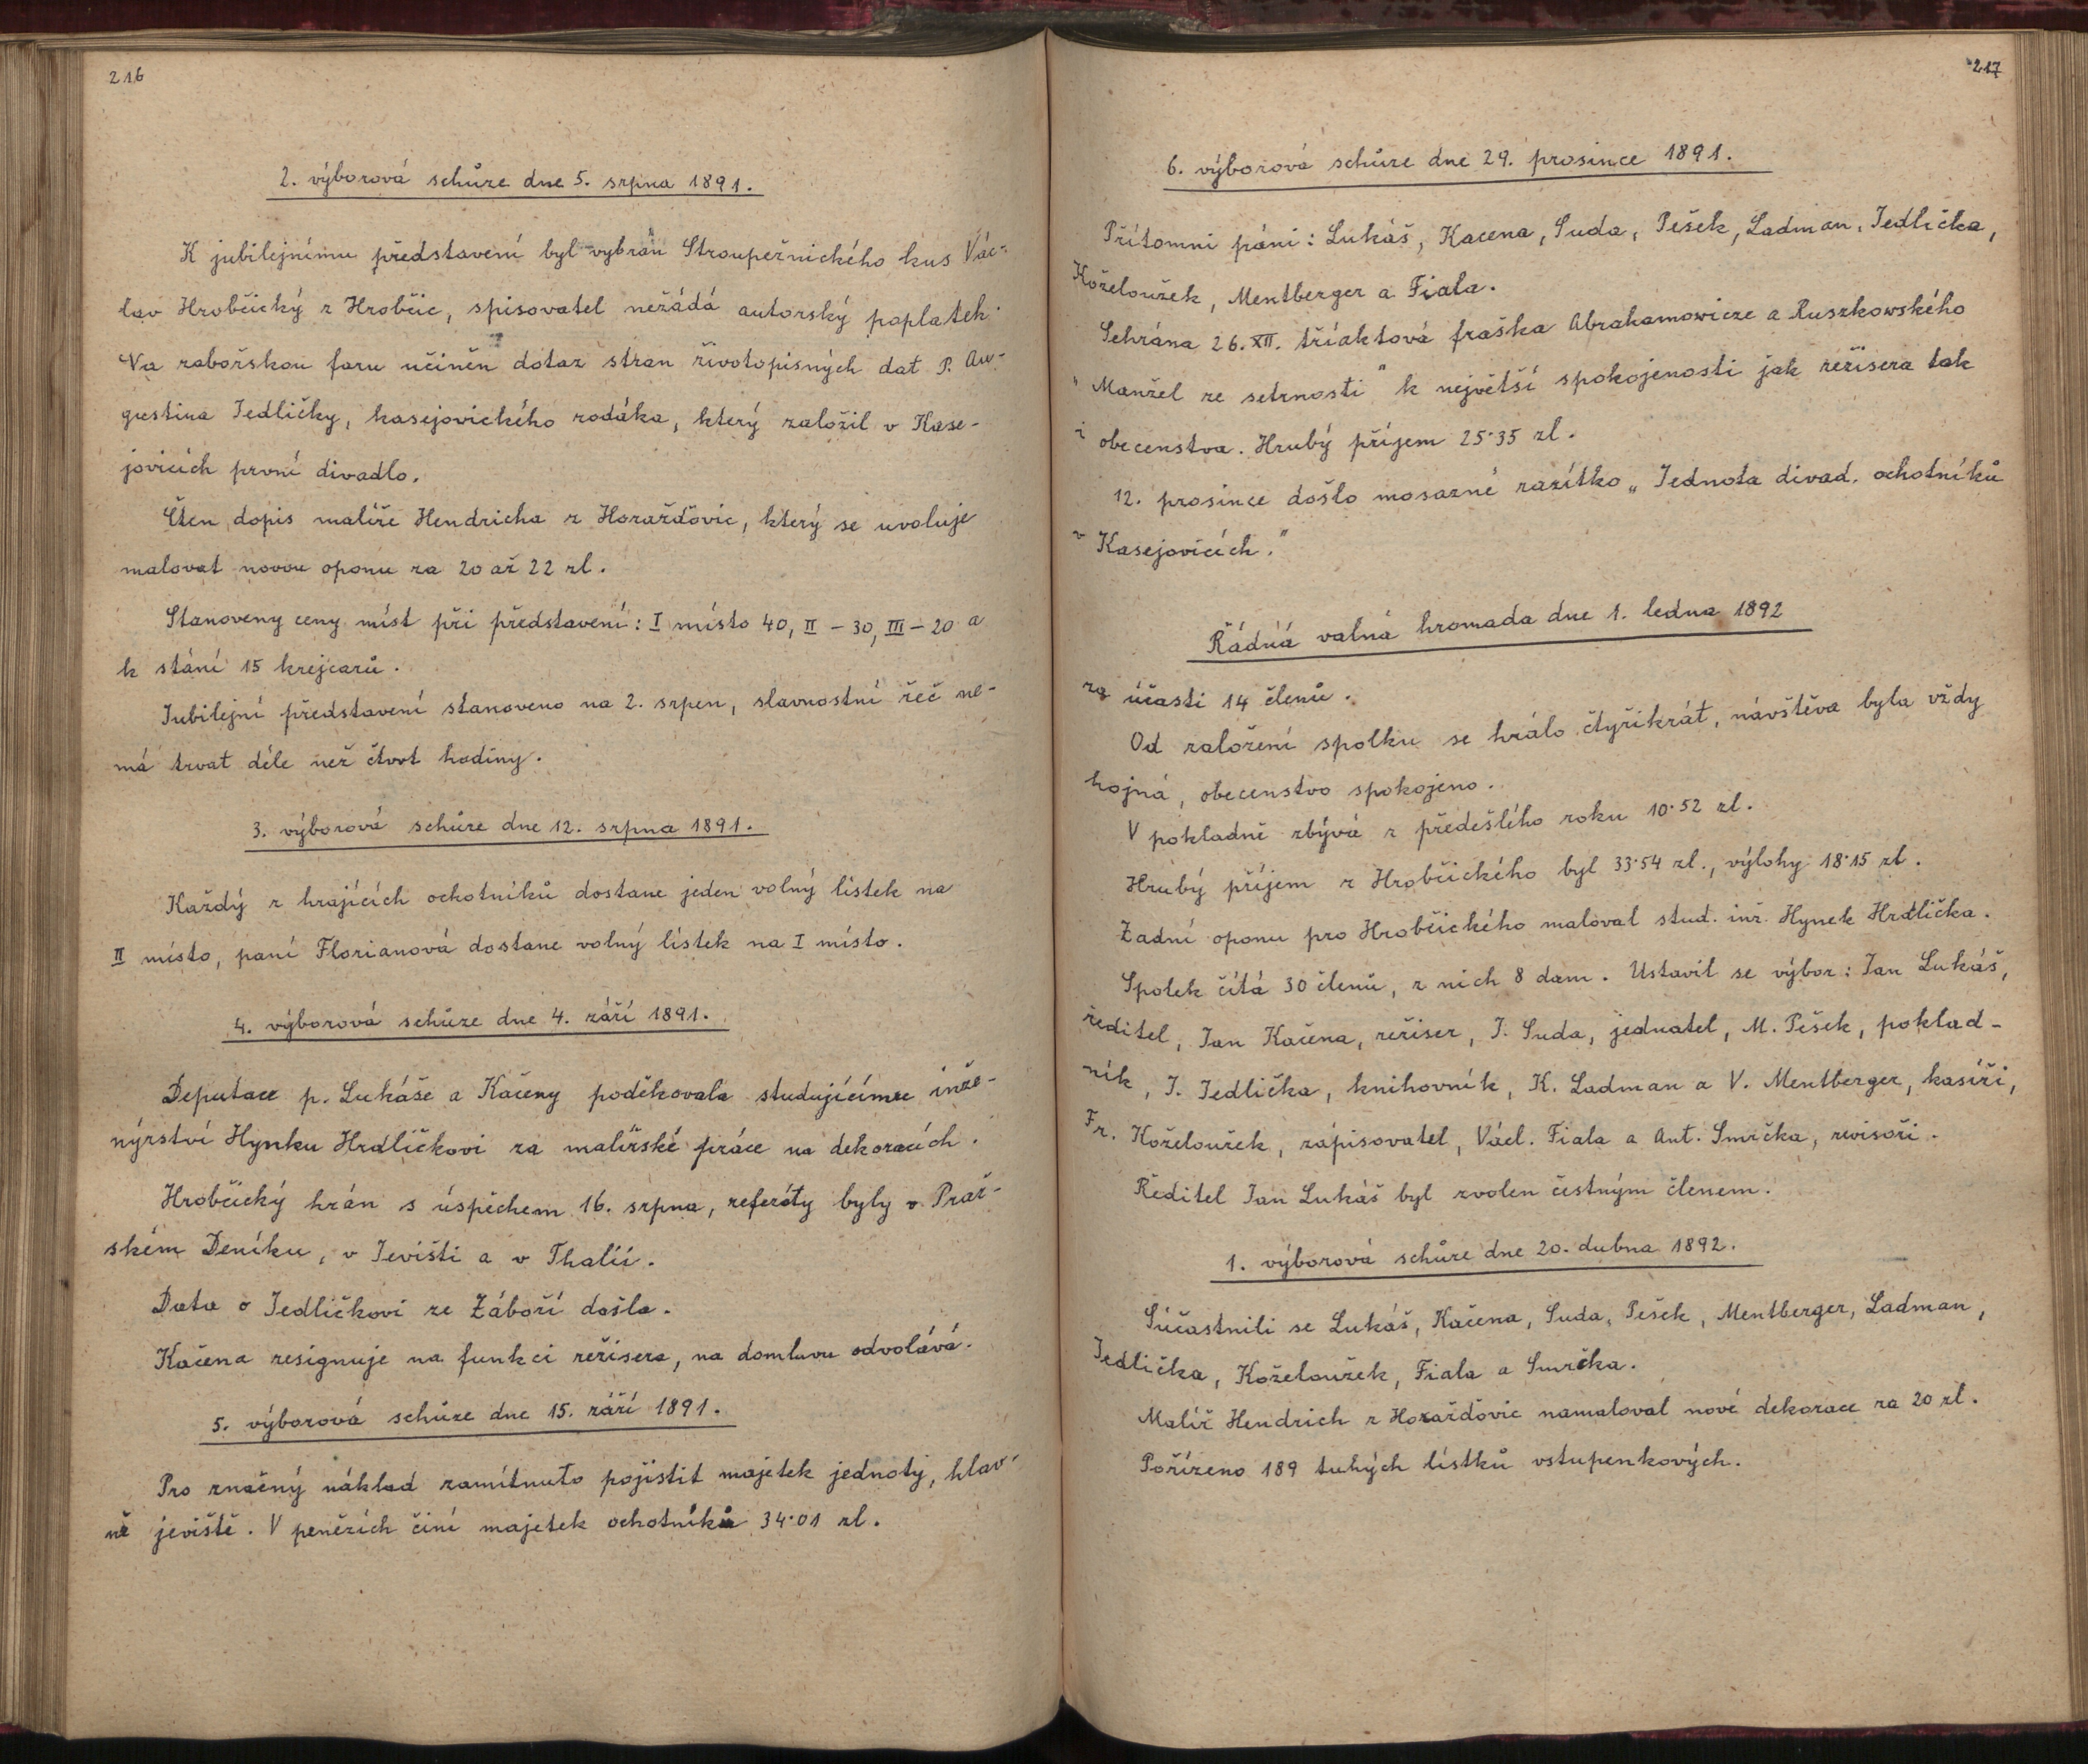 216
2. výborová schůze dne 5. srpna 1891.
K jubilejnímu představení byl vybrán Stroupežnického kus Vác-
lav Hrobčický z Hrobčic, spisovatel nežádá autorský poplatek.
Na zabořskou faru učiněn dotaz stran životopisných dat P. Au-
gustina Jedličky, kasejovického rodáka, který založil v Kase-
jovicích první divadlo.
Čten dopis malíře Hendricha z Horažďovic, který se uvoluje
malovat novou oponu za 20 až 22 zl.
Stanoveny ceny míst při představení: I místo 40, II – 30, III – 20 a
k stání 15 krejcarů.
Jubilejní představení stanoveno na 2. srpen, slavnostní řeč ne-
má trvat déle než čtvrt hodiny.
3. výborová schůze dne 12. srpna 1891.
Každý z hrajících ochotníků dostane jeden volný lístek na
II místo, paní Florianová dostane volný lístek na I místo.
4. výborová schůze dne 4. září 1891.
Deputace p. Lukáše a Kačeny poděkovala studujícímu inže-
nýrství Hynku Hrdličkovi za malířské práce na dekoracích.
Hrobčický hrán s úspěchem 16. srpna, referáty byly v Praž-
ském Deníku, v Jevišti a v Thalii.
Data o Jedličkovi ze Záboří došla.
Kačena resignuje na funkci režisera, na domluvu odvolává.
5. výborová schůze dne 15. září 1891.
Pro značný náklad zamítnuto pojistit majetek jednoty, hlav-
ně jeviště. V penězích činí majetek ochotníků 34·01 zl.
217
6. výborová schůze dne 29. prosince 1891.
Přítomni páni: Lukáš, Kacena, Suda, Pešek, Ladman, Jedlička,
Koželoužek, Mentberger a Fiala.
Sehrána 26. XII. tříaktová fraška Abrahamowicze a Ruszkowského
"Manžel ze setrnosti" k největší spokojenosti jak režisera tak
i obecenstva. Hrubý příjem 25·35 zl.
12. prosince došlo mosazné razítko „Jednota divad. ochotníků
v Kasejovicích."
Řádná valná hromada dne 1. ledna 1892
za účasti 14 členů.
Od založení spolku se hrálo čtyřikrát, návštěva byla vždy
hojná, obecenstvo spokojeno.
V pokladně zbývá z předešlého roku 10·52 zl.
Hrubý příjem z Hrobčického byl 33·54 zl., výlohy 18·15 zl.
Zadní oponu pro Hrobčického maloval stud. inž. Hynek Hrdlička.
Spolek čítá 30 členů, z nich 8 dam. Ustavil se výbor: Jan Lukáš,
ředitel, Jan Kačena, režiser, J. Suda, jednatel, M. Pešek, poklad-
ník, J. Jedlička, knihovník, K. Ladman a V. Mentberger, kasíři,
Fr. Koželoužek, zápisovatel, Václ. Fiala a Ant. Smrčka, revisoři.
Ředitel Jan Lukáš byl zvolen čestným členem.
1. výborová schůze dne 20. dubna 1892.
Súčastnili se Lukáš, Kačena, Suda, Pešek, Mentberger, Ladman,
Jedlička, Koželoužek, Fiala a Smrčka.
Malíř Hendrich z Horažďovic namaloval nové dekorace za 20 zl.
Pořízeno 189 tuhých lístků vstupenkových.